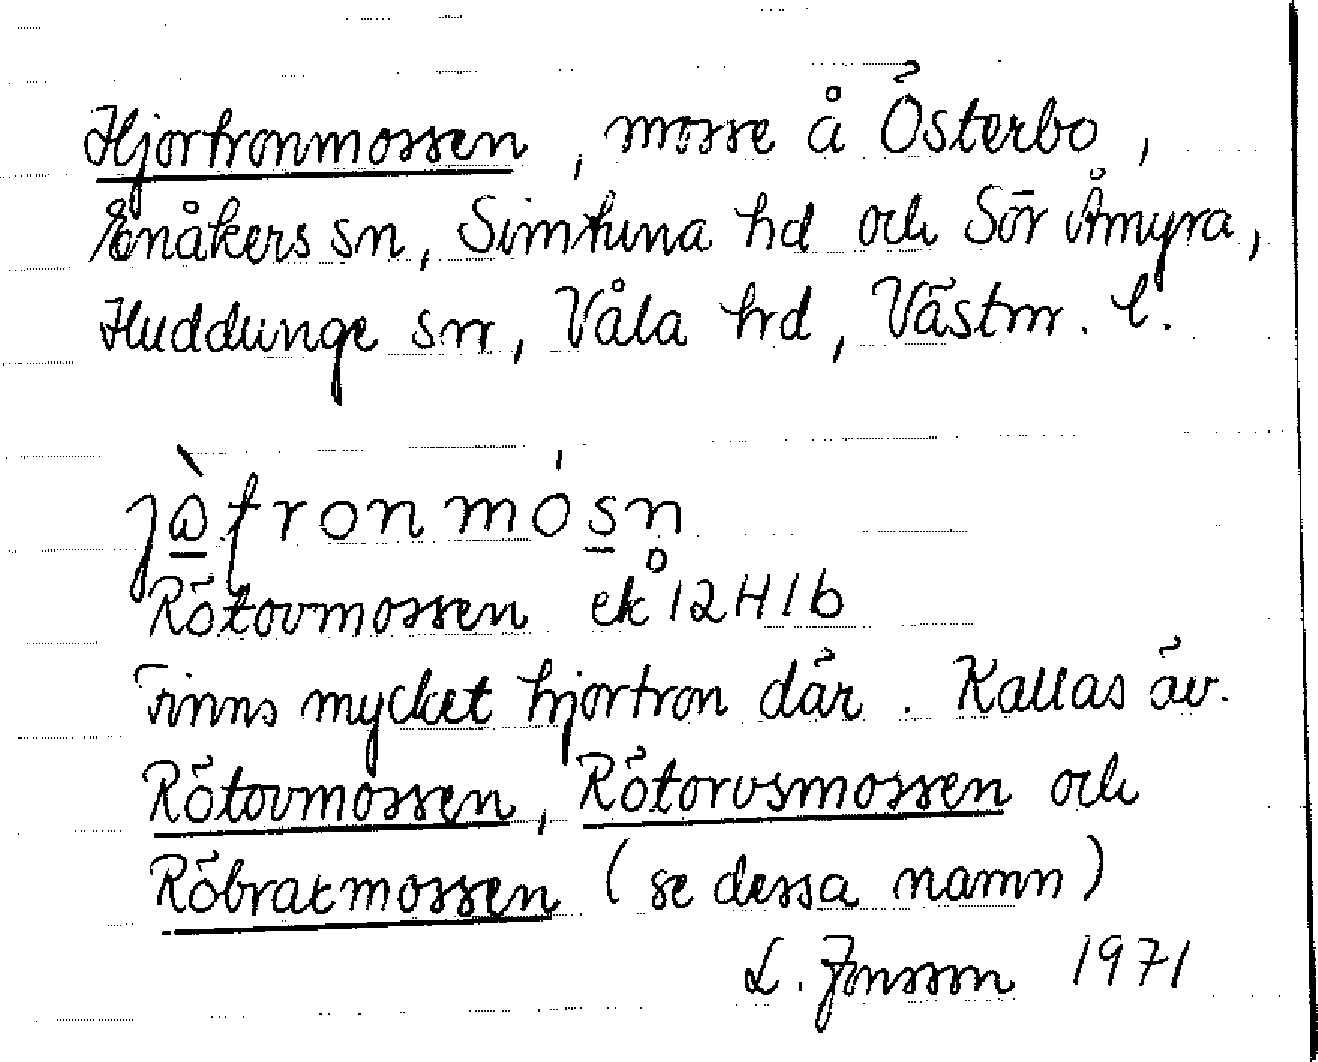 Hjortronmossen, mosse å Österbo,
Enåkers sn, Simtuna hd och Sör Åmyra,
Huddunge sn, Våla hd, Västm. l.
jὼtronmósn
Rötovmossen ek 12H1b
Finns mycket hjortron där. Kallas äv.
Rötovmossen, Rötorvsmossen och
Röbratmossen (se dessa namn)
L. Jonsson 1971